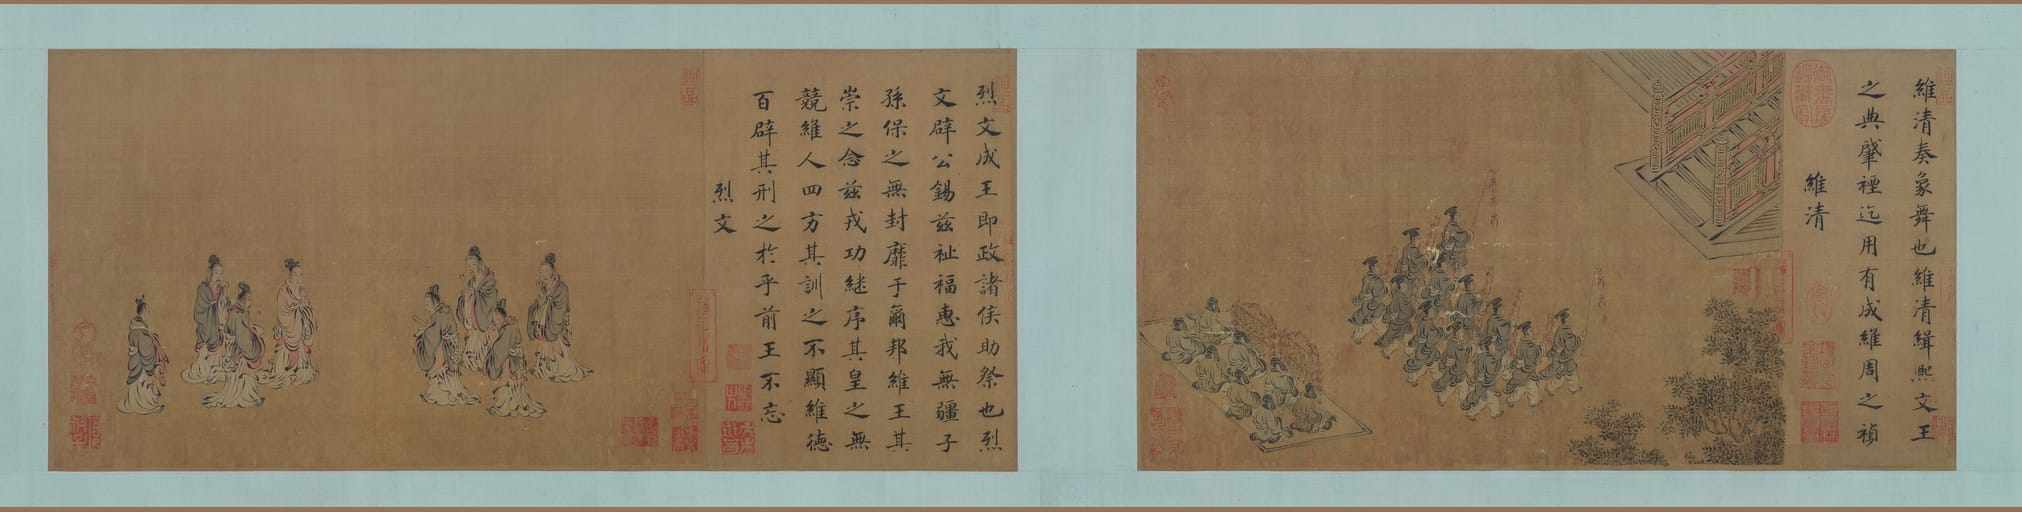 維清奏象舞也維清緝熈文王
之典肇禋迄用有成維周之禎
維清
烈文成王即政諸侯助祭也烈
文辟公錫茲祉福惠我無疆子
孫保之無封靡于爾邦維王其
崇之念茲戎功継序其皇之無
競維人四方其訓之不顯維德
百辟其刑之於乎前王不忘
烈文